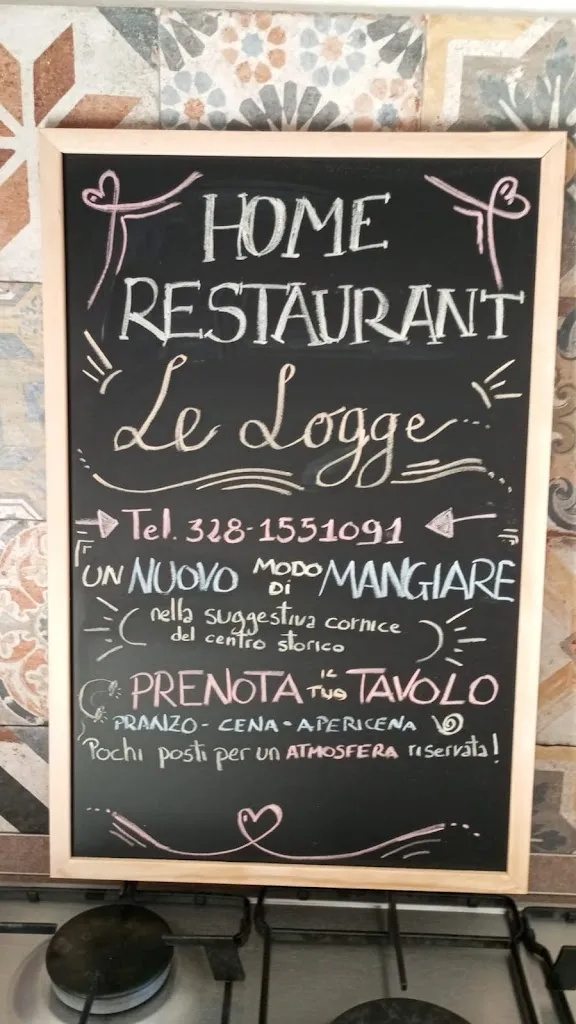 HOME
RESTAURANT
Le Logge
Tel. 328-1551091
UN NUOVO MODO DI MANGIARE
nella suggestiva cornice
del centro storico
PRENOTA IL TUO TAVOLO
PRANZO - CENA - APERICENA
Pochi posti per un ATMOSFERA riservata!